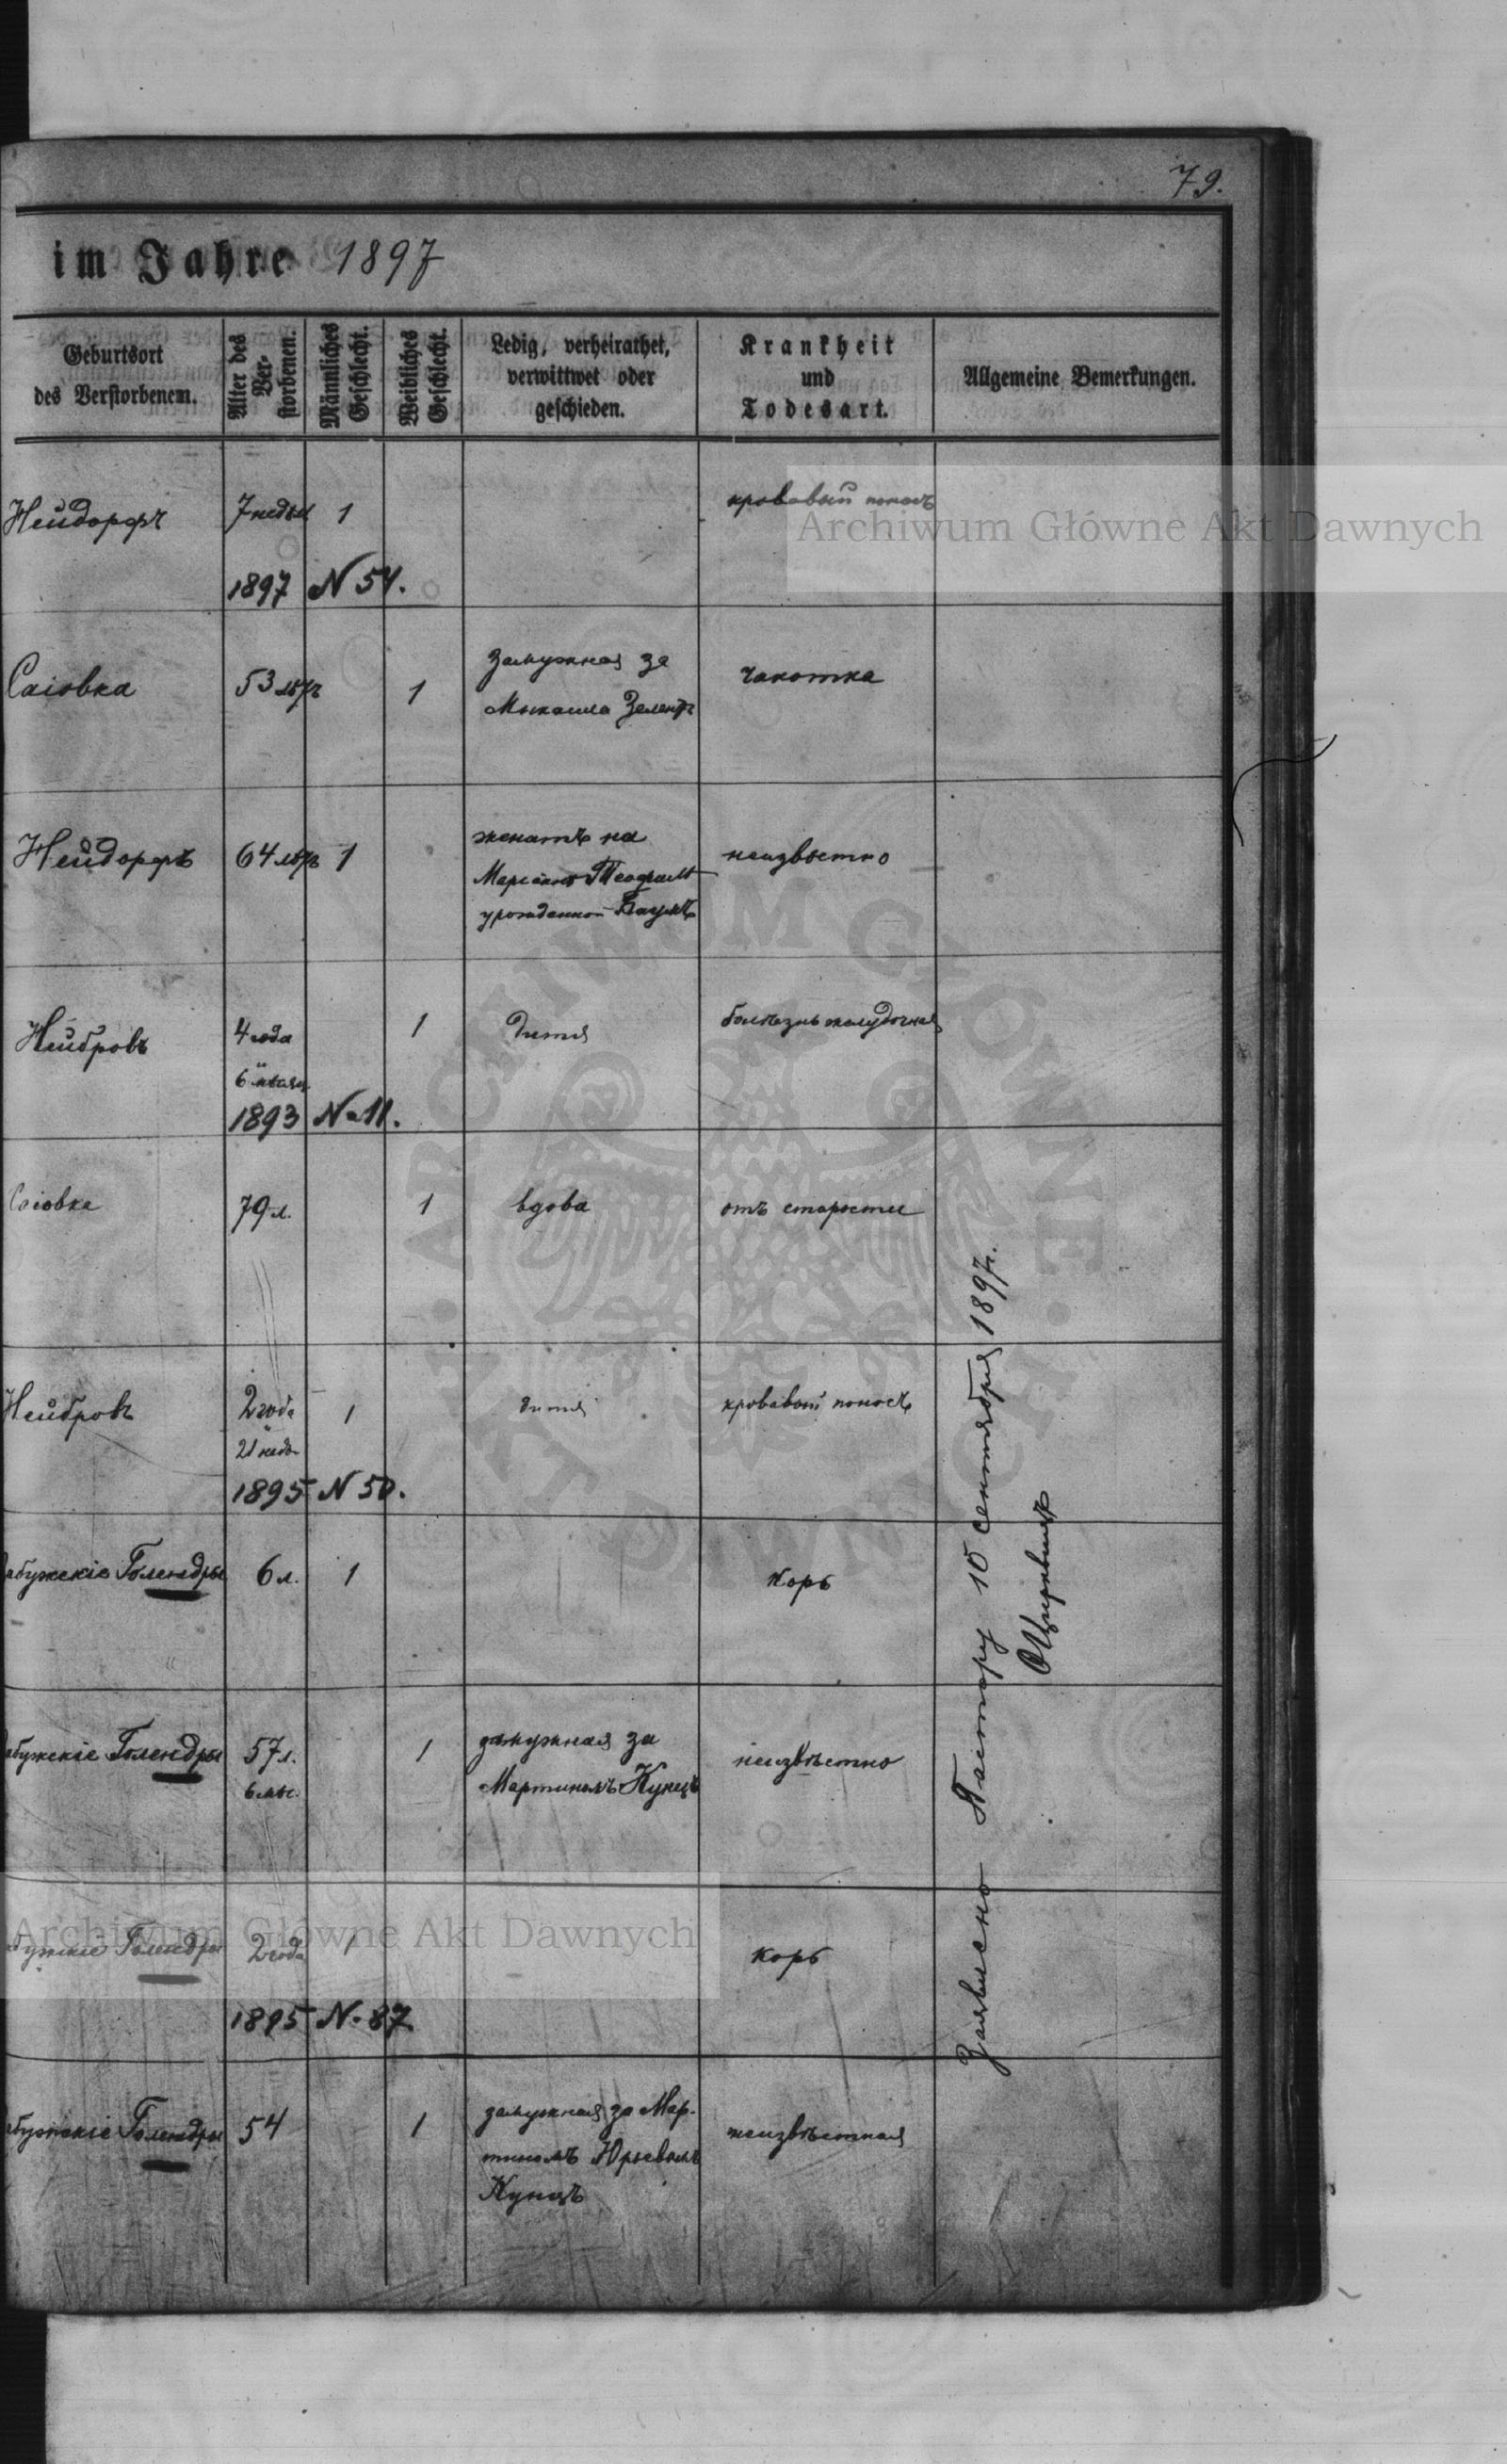 79.
im Jahre 1897
Geburtsort
des Verstorbenen.
Alter des
Ver-
storbenen.
Männliches
Geschlecht.
Weibliches
Geschlecht.
Ledig, verheirathet,
verwittwet oder
geschieden.
Krankheit
und
Todesart.
Allgemeine Bemerkungen.
Нейдорфъ 7 недѣл 1 кровавый поносъ
1897 N 54.
Саіовка 53 лѣтъ 1 замужная за чахотка
Зелентъ
Нейдорфъ 64 лѣтъ 1 женатъ на неизвѣстно
урожденной Баумъ
Нейбровъ 4 года 1 дитя болѣзнь желудочная
6
1893 No 11.
Саіовка 79 л. 1 вдова отъ старости
Нейбровъ 2 года 1 дитя кровавый поносъ
21 недѣ
1895 N 50.
абужскіе Голендры 6 л. 1 корь
абужскіе Голендры 57 л. 1 замужная за неизвѣстно
6 мѣс. Мартиномъ Кунцъ
бужскіе Голендры 2 года 1 корь
1895 N. 87
абужскіе Голендры 54 1 замужная за Мар- неизвѣстная
тиномъ Юрьевымъ
Кунцъ
Заявлено Пастору 10 сентября 1897 г.
Archiwum Główne Akt Dawnych
Archiwum Główne Akt Dawnych
ARCHIWUM GŁÓWNE AKT DAWNYCH